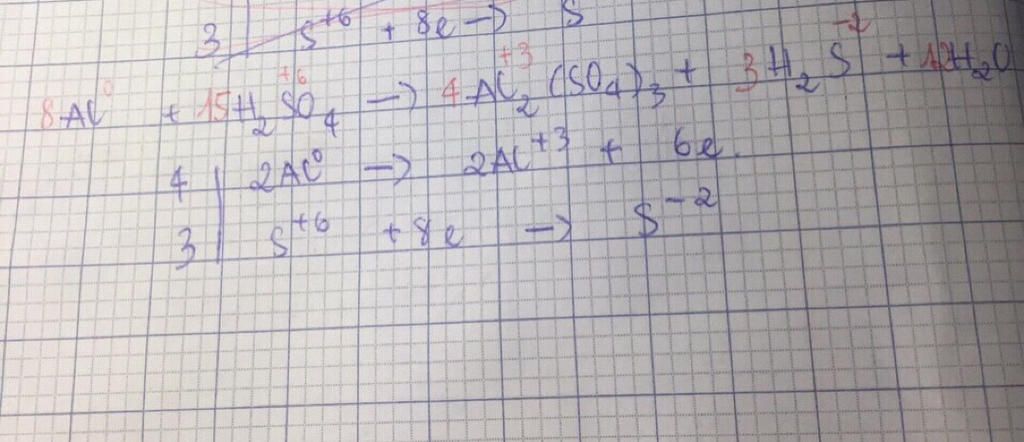 3 S+6 + 8e → S
8Al0 + 15H2S+6O4 → 4Al+32(SO4)3 + 3H2S-2 + 12H2O
4 | 2Al0 → 2Al+3 + 6e.
3 | S+6 + 8e → S-2